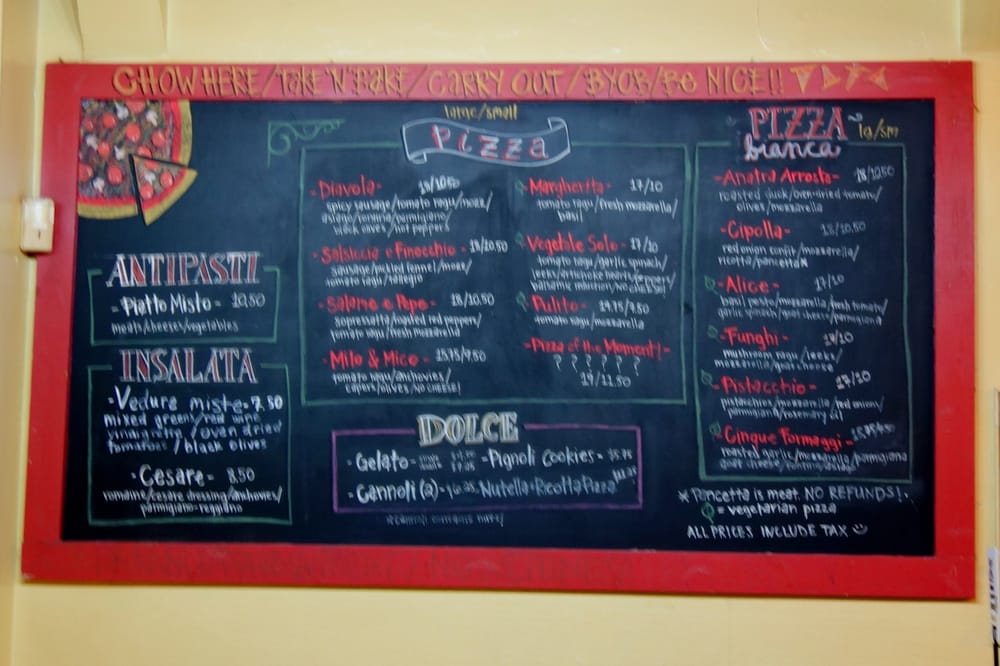 CHOW HERE/TAKE 'N' BAKE/CARRY OUT/BYOB/BE NICE!!
ANTIPASTI
-Piatto Misto- 10.50
meats/cheeses/vegetables
INSALATA
-Vedure miste- 7.50
mixed green/red onion
vinaigrette/oven dried
tomatoes/black olives
-Cesare- 8.50
romaine/cesare dressing/anchovies/
parmigiano-reggiano
large/small
Pizza
-Diavola-
spicy sausage/tomato ragu/mozz/
parmigiano/
hot peppers
-Salsiccia e Finocchio- 18/10.50
sausage/pickled fennel/mozz/
tomato ragu/
-Salame e Pepe- 18/10.50
sopressatta/roasted red peppers/
tomato ragu/fresh mozzarella
-Milo & Mico- 15.75/9.50
tomato ragu/anchovies/
capers/olives/no cheese!
-Margherita- 17/10
tomato ragu/fresh mozzarella/
basil
-Vegetable Solo- 17/10
tomato ragu/garlic spinach/
leeks/artichoke hearts/
balsamic
-Pulito-
tomato ragu/mozzarella
-Pizza of the Moment!-
? ? ? ? ? ?
19/11.50
DOLCE
-Gelato-
-Pignoli Cookies-
-Cannoli (2)-
Nutella+Ricotta Pizza
PIZZA
bianca
lg/sm
-Anatra Arrosto- 18/10.50
roasted duck/oven-dried tomato/
olives/mozzarella
-Cipolla- 18/10.50
red onion confit/mozzarella/
ricotta/pancetta*
-Alice- 17/10
basil pesto/mozzarella/fresh tomato/
garlic spinach/goat cheese/parmigiana
-Funghi- 17/10
mushroom ragu/leeks/
mozzarella/goat cheese
-Pistacchio- 17/10
pistachios/mozzarella/red onion/
parmigiana/rosemary
-Cinque Formaggi-
roasted garlic/mozzarella/parmigiana
goat cheese/
*Pancetta is meat. NO REFUNDS!
= vegetarian pizza
ALL PRICES INCLUDE TAX